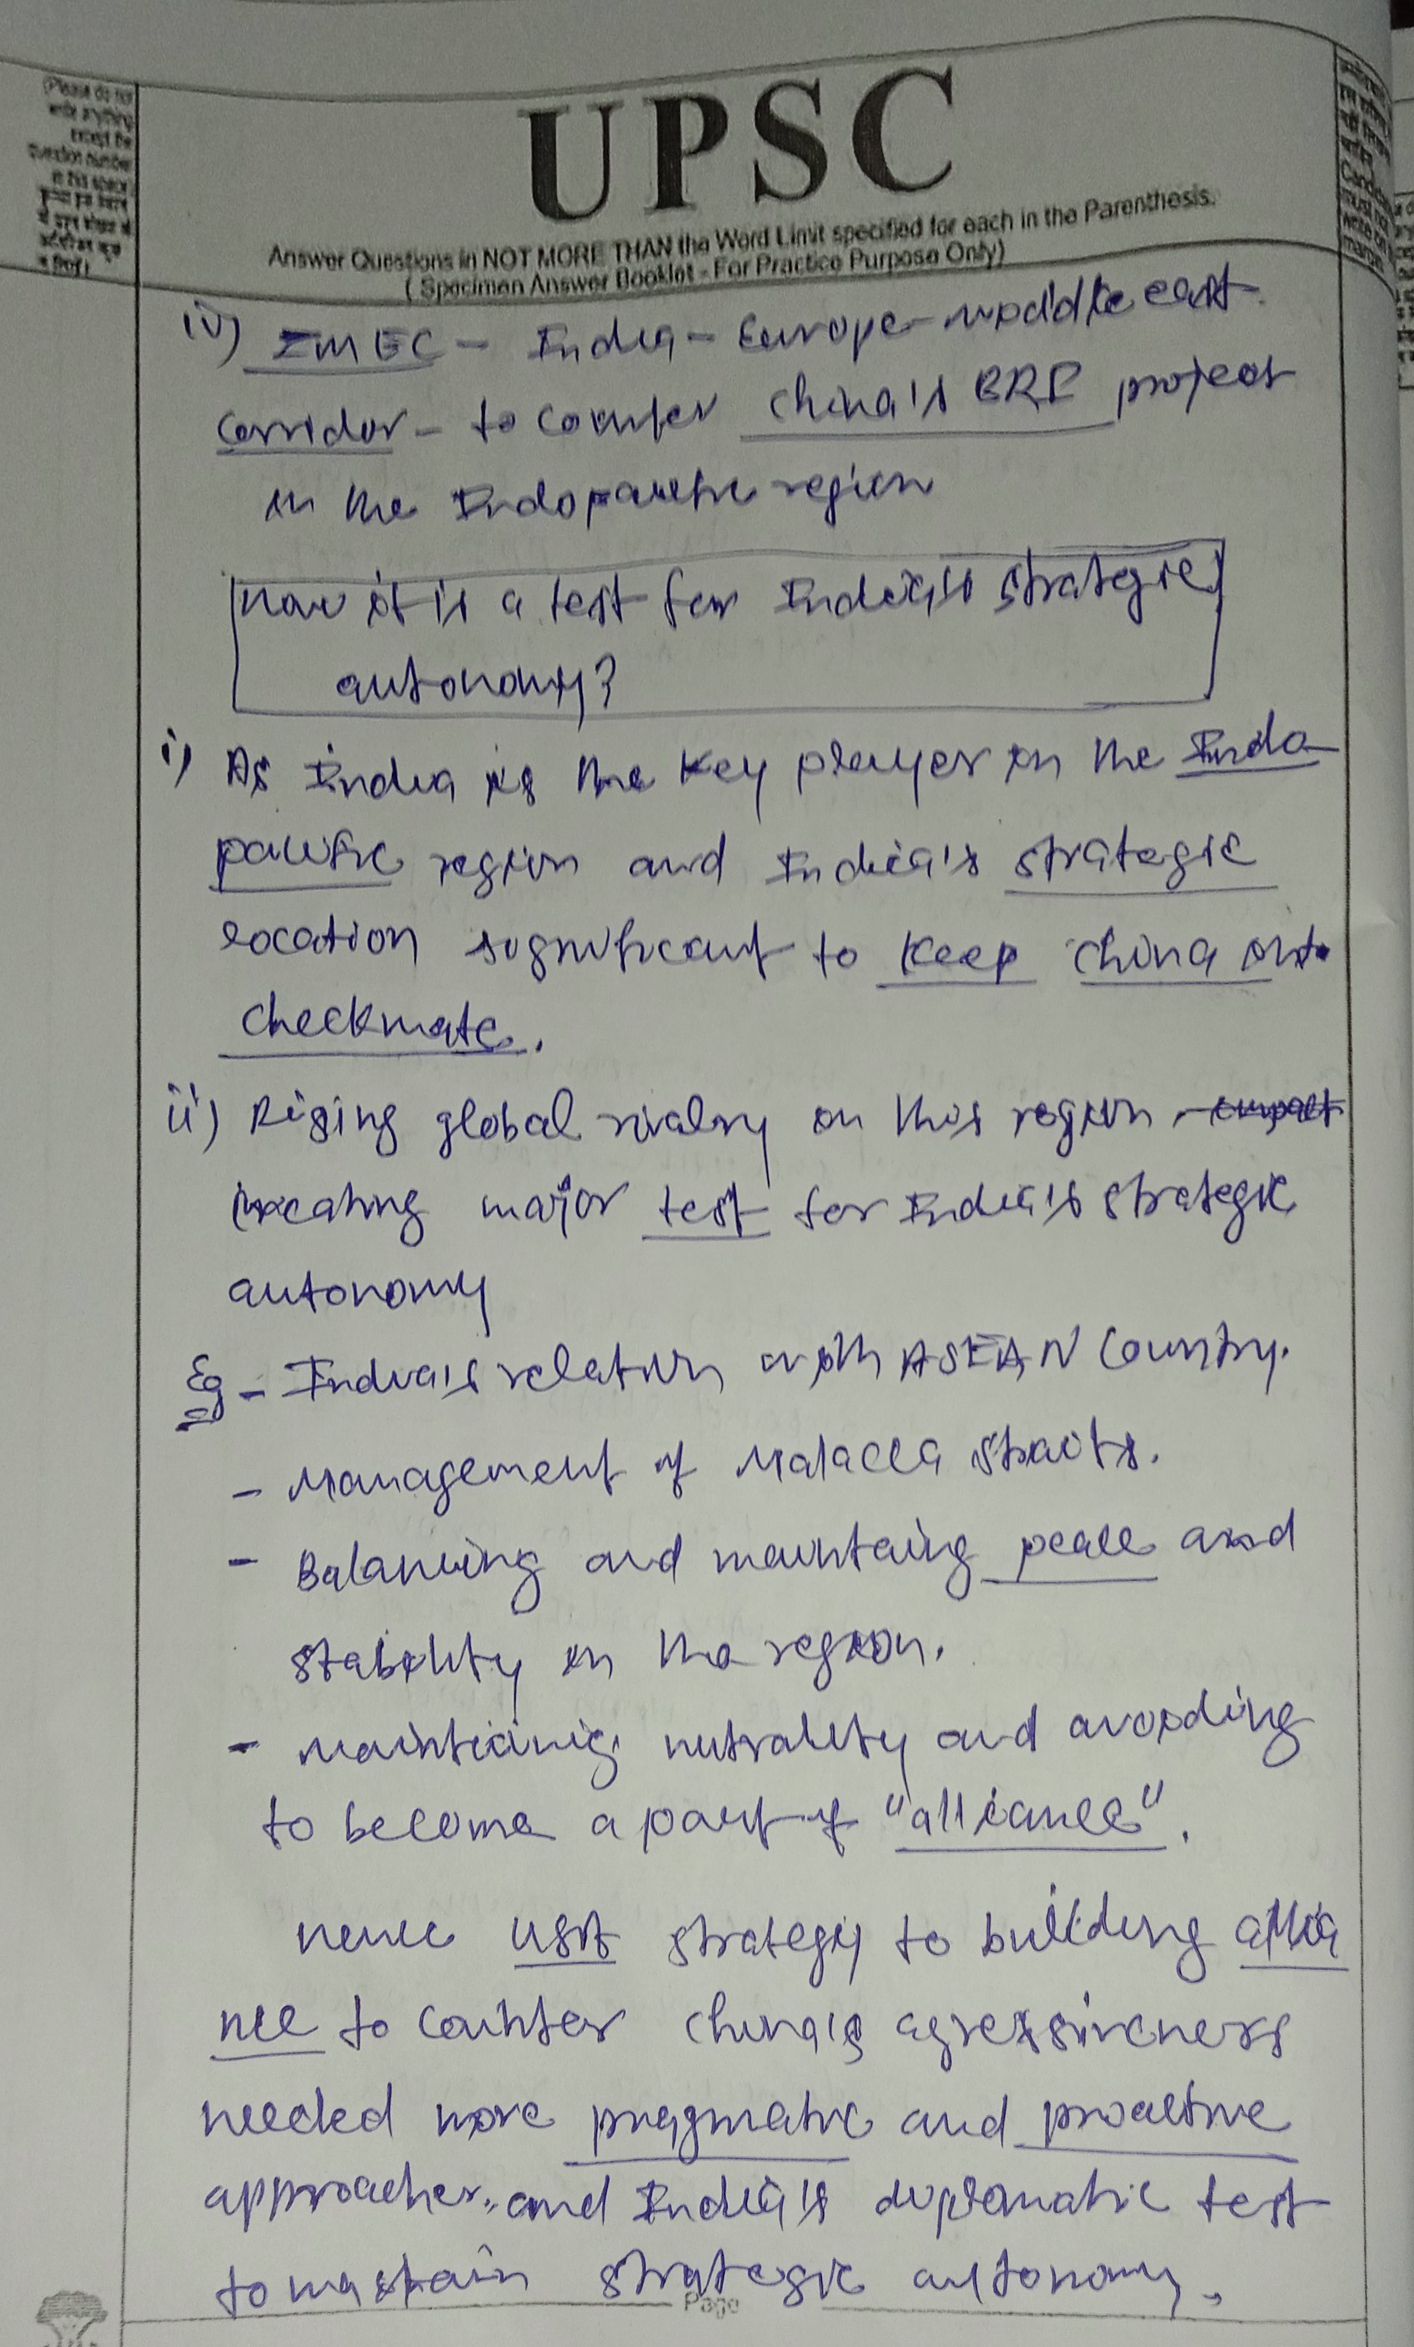 (Please do not
write anything
except the
question number
in this space
UPSC
Answer Questions in NOT MORE THAN the Word Limit specified for each in the Parenthesis.
( Specimen Answer Booklet - For Practice Purpose Only)
iv) IMEC - India - Europe - middle east
corridor - to counter china's BRI project
in the Indopacific region
How it is a test for India's strategic
autonomy?
i) As India is the key player in the Indo
pacific region and India's strategic
location significant to keep china
checkmate.
ii) Rising global rivalry on this region
creating major test for India's strategic
autonomy
Eg - India's relation with ASEAN Country.
- Management of Malacca straits.
- Balancing and maintaing peace and
stability in the region.
- maintianig nutrality and avoiding
to become a part of "alliance".
Hence USA strategy to building allia
nce to counter china's agressiveness
needed more pragmatic and proactive
approaches, and India's diplomatic test
to strategic autonomy.
Page